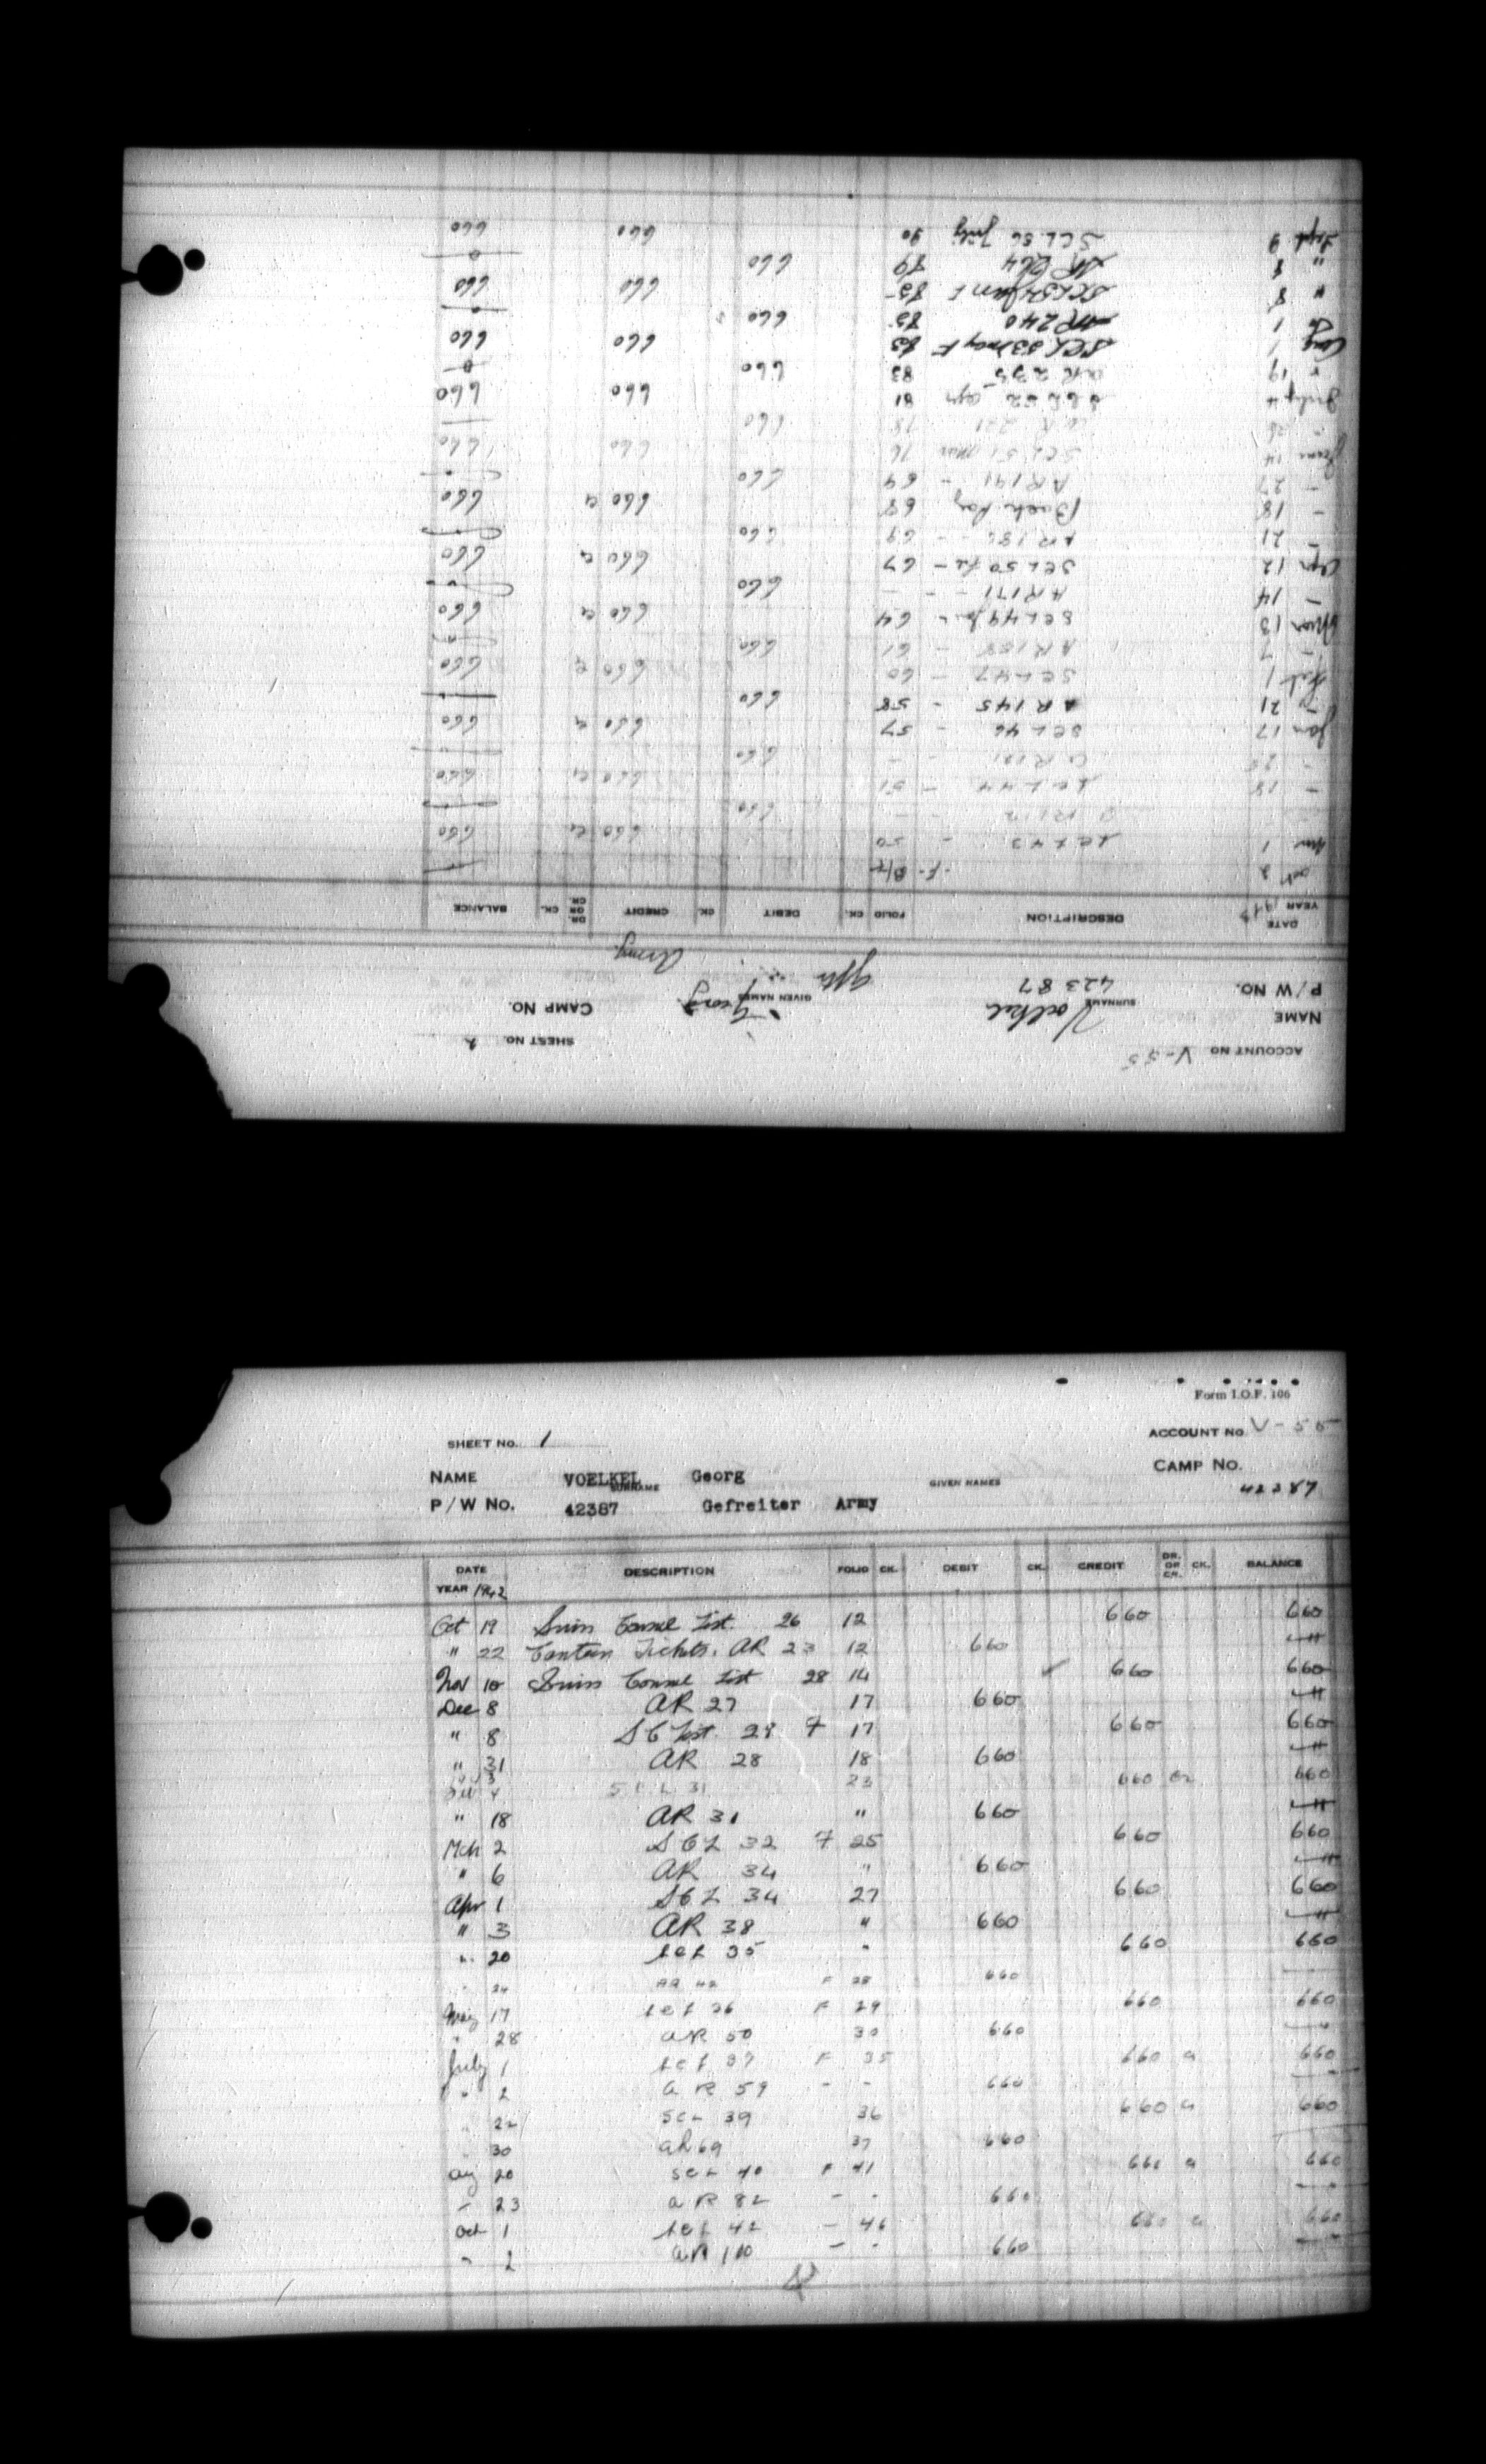 Form I.O.F. 106
SHEET NO. 1 ACCOUNT NO. V-55
NAME VOELKEL Georg CAMP NO.
SURNAME GIVEN NAMES
P/W NO. 42387 Gefreiter Army 42387
DATE DESCRIPTION FOLIO CK. DEBIT CK. CREDIT DR. OR CR. CK. BALANCE
YEAR 1942
Oct 19 Swiss Consul List 26 12 660 660
" 22 Canteen Tickets. AR 23 12 660 — " —
Nov 10 Swiss Consul List 28 14 660 660
Dec 8 AR 27 17 660 — " —
" 8 S C List 29 F 17 660 660
" 31 AR 28 18 660 — " —
4 S C L 31 23 660 660
" 18 AR 31 " 660 — " —
Mch 2 S C L 32 F 25 660 660
" 6 AR 34 " 660 — " —
Apr 1 S C L 34 27 660 660
" 3 AR 38 " 660 — " —
" 20 SCL 35 " 660 660
" 24 AR 42 F 28 660
May 17 SCL 36 F 29 660 660
" 28 AR 50 30 660 — " —
July 1 SCL 37 F 35 660 660
" 2 AR 59 - - 660 — " —
" 22 SCL 39 36 660 660
30 AR 69 37 660
Aug 20 SCL 40 F 41 660 660
- 23 AR 82 - - 660 — " —
Oct 1 SCL 42 - 46 660 660
- 2 AR 100 - - 660 — " —
ACCOUNT NO V-55
SHEET NO. 2
NAME Voelkel Georg CAMP NO.
SURNAME GIVEN NAMES
P/W NO. 42387 Gftr Army
DATE DESCRIPTION FOLIO CK. DEBIT CK. CREDIT DR. OR CR. CK. BALANCE
YEAR 1943
Oct 2 F. B/F
Nov 1 SCL 43 - 50 660 660
AR 112 660
- 18 SCL 44 - 51 660 660
AR 121 660
Jan 17 SCL 46 - 57 660 660
- 21 AR 145 - 58 660
Feb 1 SCL 47 - 60 660 660
- 7 AR 158 - 61 660
Mar 13 SCL 49 - 64 660 660
- 14 AR 171 - - 660
Apr 12 SCL 50 - 67 660 660
- 21 AR 186 - - 69 660
- 18 Back Pay 68 660 660
- 27 AR 191 - 69 660
June 14 SCL 51 Mar 76 660 660
- 26 AR 221 78 660
July 4 SCL 52 Apr 81 660 660
" 19 AR 235 83 660
Aug 1 SCL 53 May F 85 660 660
1 AR 240 85 660
" 8 SCL 54 June F 85 660 660
" 8 AR 264 89 660
Sept 9 SCL 56 July 90 660 660